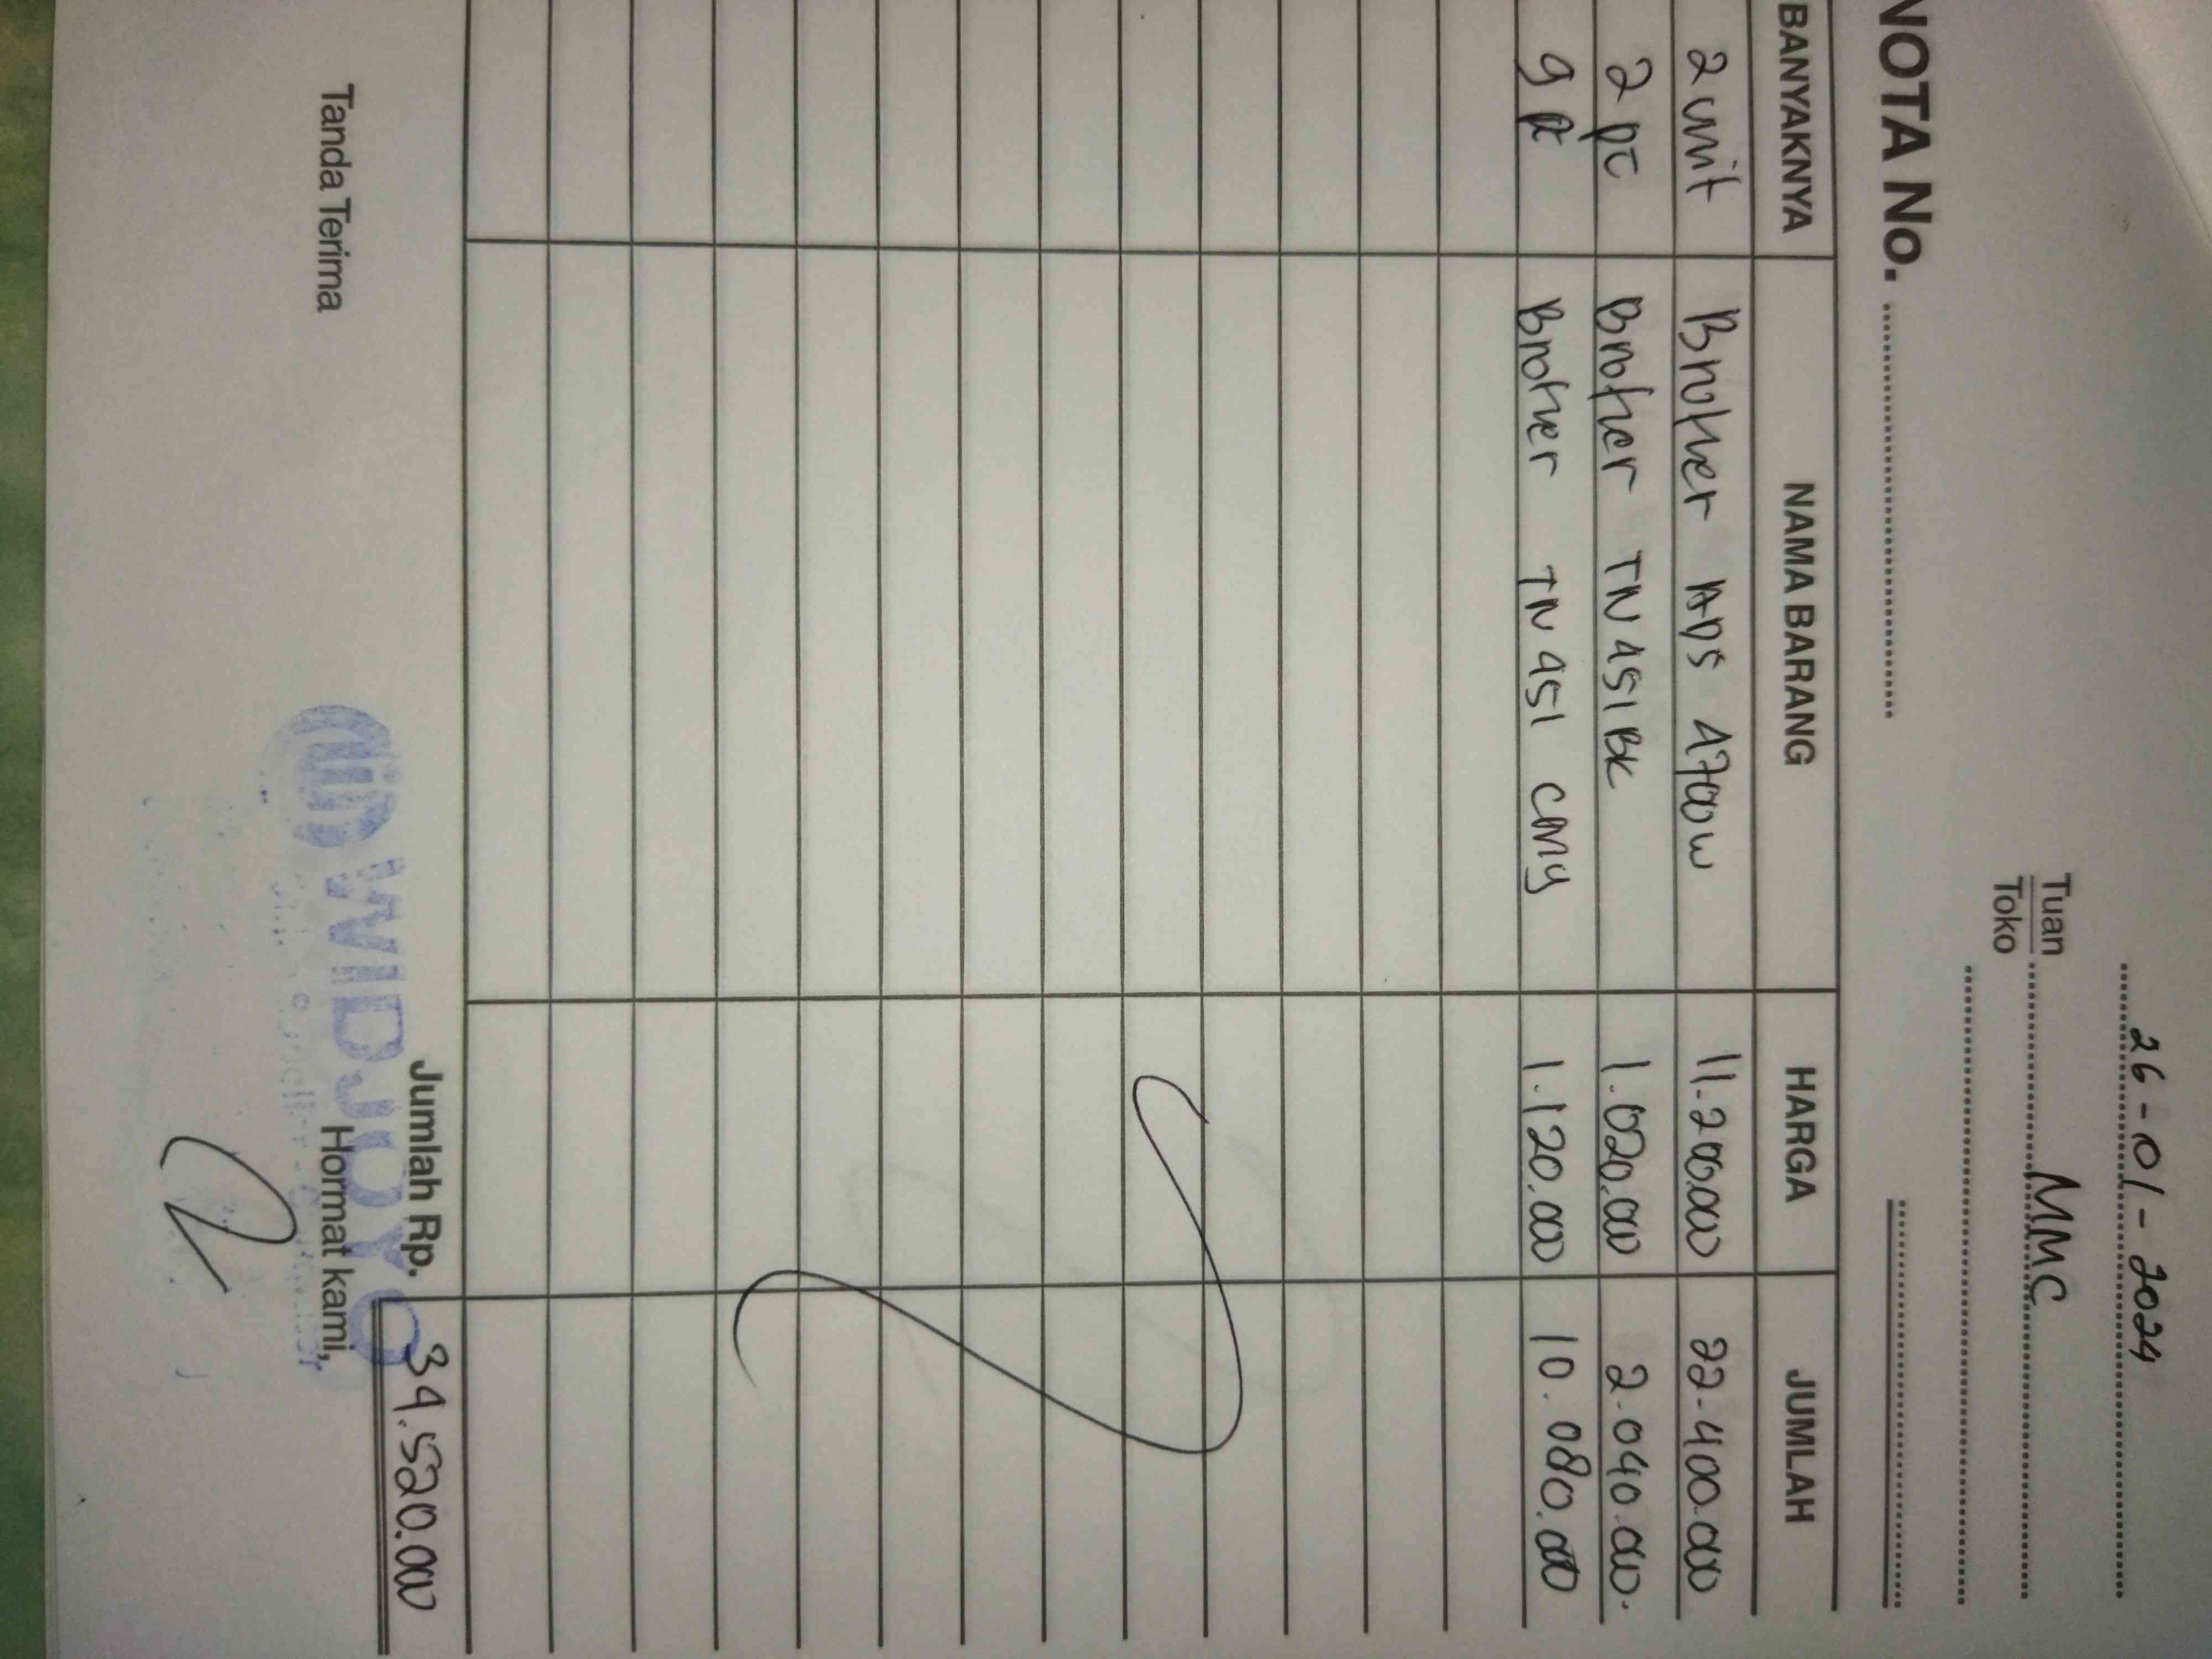 26-01-2024
Tuan MMC
Toko
NOTA No.
BANYAKNYA NAMA BARANG HARGA JUMLAH
2 unit Brother ADS 4700w 11.200.000 22.400.000
2 pc Brother TN 451 BK 1.020.000 2.040.000.
9 pc Brother TN 451 CMY 1.120.000 10.080.000
Jumlah Rp. 34.520.000
Tanda Terima Hormat kami,
WIDJOYO